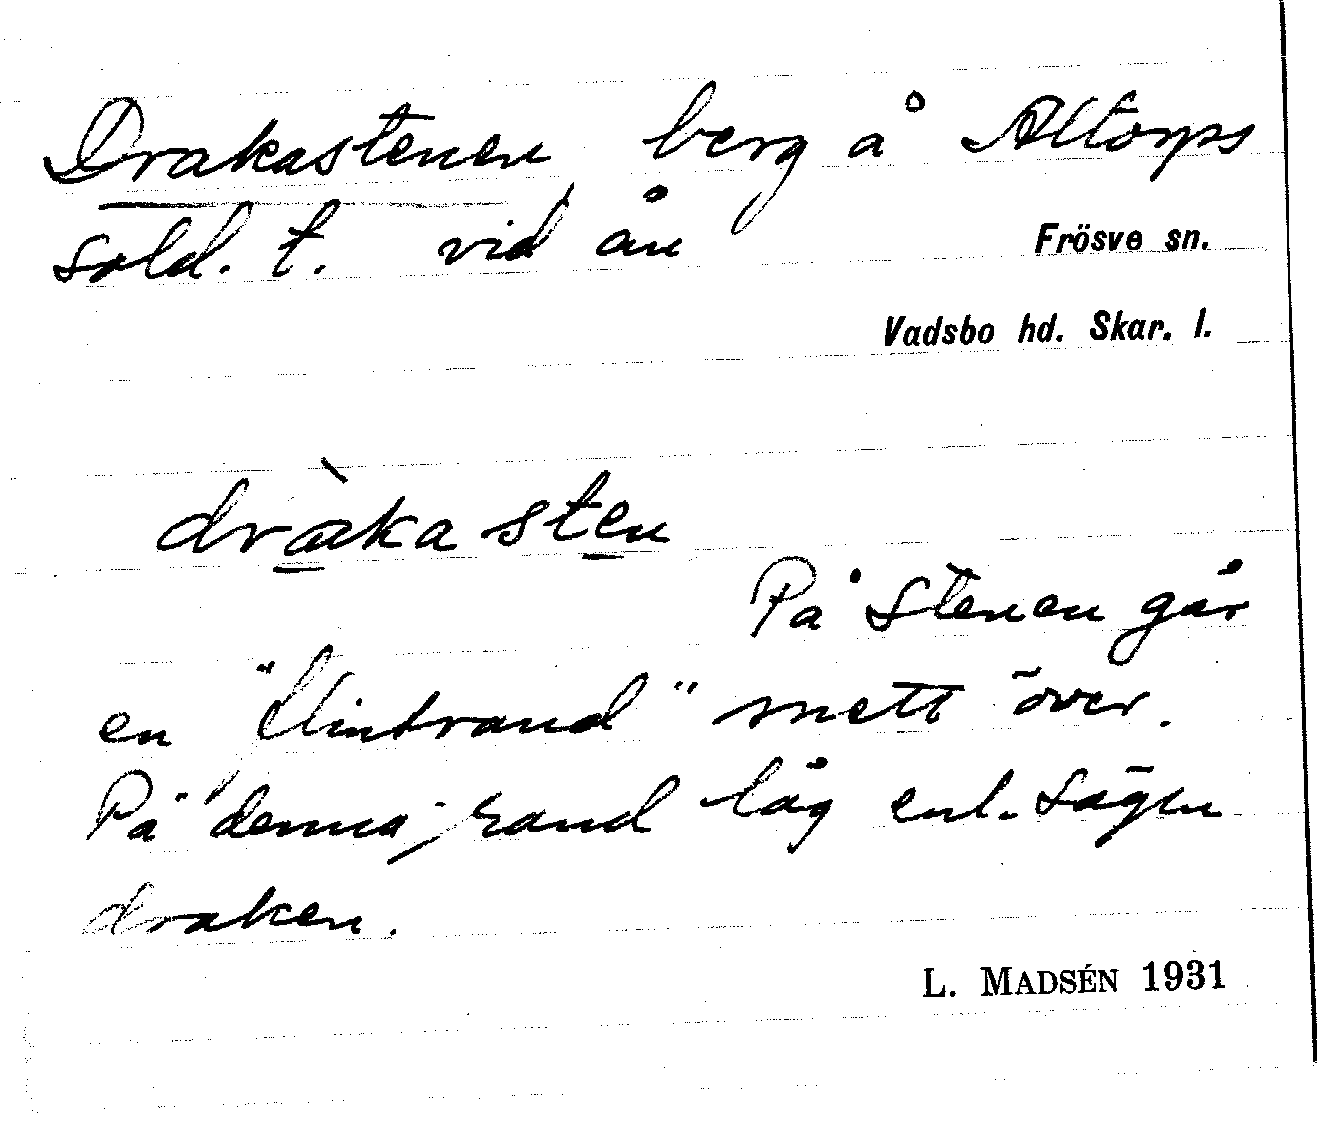 Drakastenen, berg å Altorps
sold. t. vid ån
Frösve sn.
Vadsbo hd. Skar. l.
dràka sten
På stenen går
en "flintrand" snett över.
På denna rand låg enl. sägen
draken.
L. MADSÉN 1931